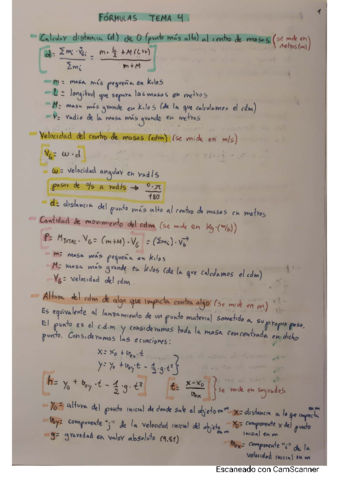 1
FÓRMULAS TEMA 4
- Calcular distancia (d) de O (punto más alto) al centro de masas (se mide en metros (m))
d = Σmi·ri / Σmi = m·L/2 + M(L+r) / m+M
- m = masa más pequeña en kilos
- L = longitud que separa las masas en metros
- M = masa más grande en kilos (de la que calculamos el cdm)
- r = radio de la masa más grande en metros
- Velocidad del centro de masas (cdm) (se mide en m/s)
VG = ω·d
- ω = velocidad angular en rad/s
pasar de º/s a rad/s → º·π / 180
- d = distancia del punto más alto al centro de masas en metros
- Cantidad de movimiento del cdm (se mide en kg·(m/s))
P = Mtotal·VG = (m+M)·VG = (Σmi)·VG
- m = masa más pequeña en kilos
- M = masa más grande en kilos (de la que calculamos el cdm)
- VG = velocidad del cdm
- Altura del cdm de algo que impacta contra algo (se mide en m)
Es equivalente al lanzamiento de un punto material sometido a su propio peso.
El punto es el c.d.m y consideramos toda la masa concentrada en dicho
punto. Consideramos las ecuaciones:
x = x0 + v0x·t
y = y0 + v0y·t - 1/2·g·t²
h = y0 + v0y·t - 1/2·g·t²
t = x-x0 / v0x → se mide en segundos
- y0 = altura del punto inicial de donde sale el objeto en m
- v0y = componente "j" de la velocidad inicial del objeto en m/s
- g = gravedad en valor absoluto (9.81)
- x = distancia a la que impacta en m
- x0 = componente x del punto inicial en m
- v0x = componente "i" de la velocidad inicial en m
Escaneado con CamScanner